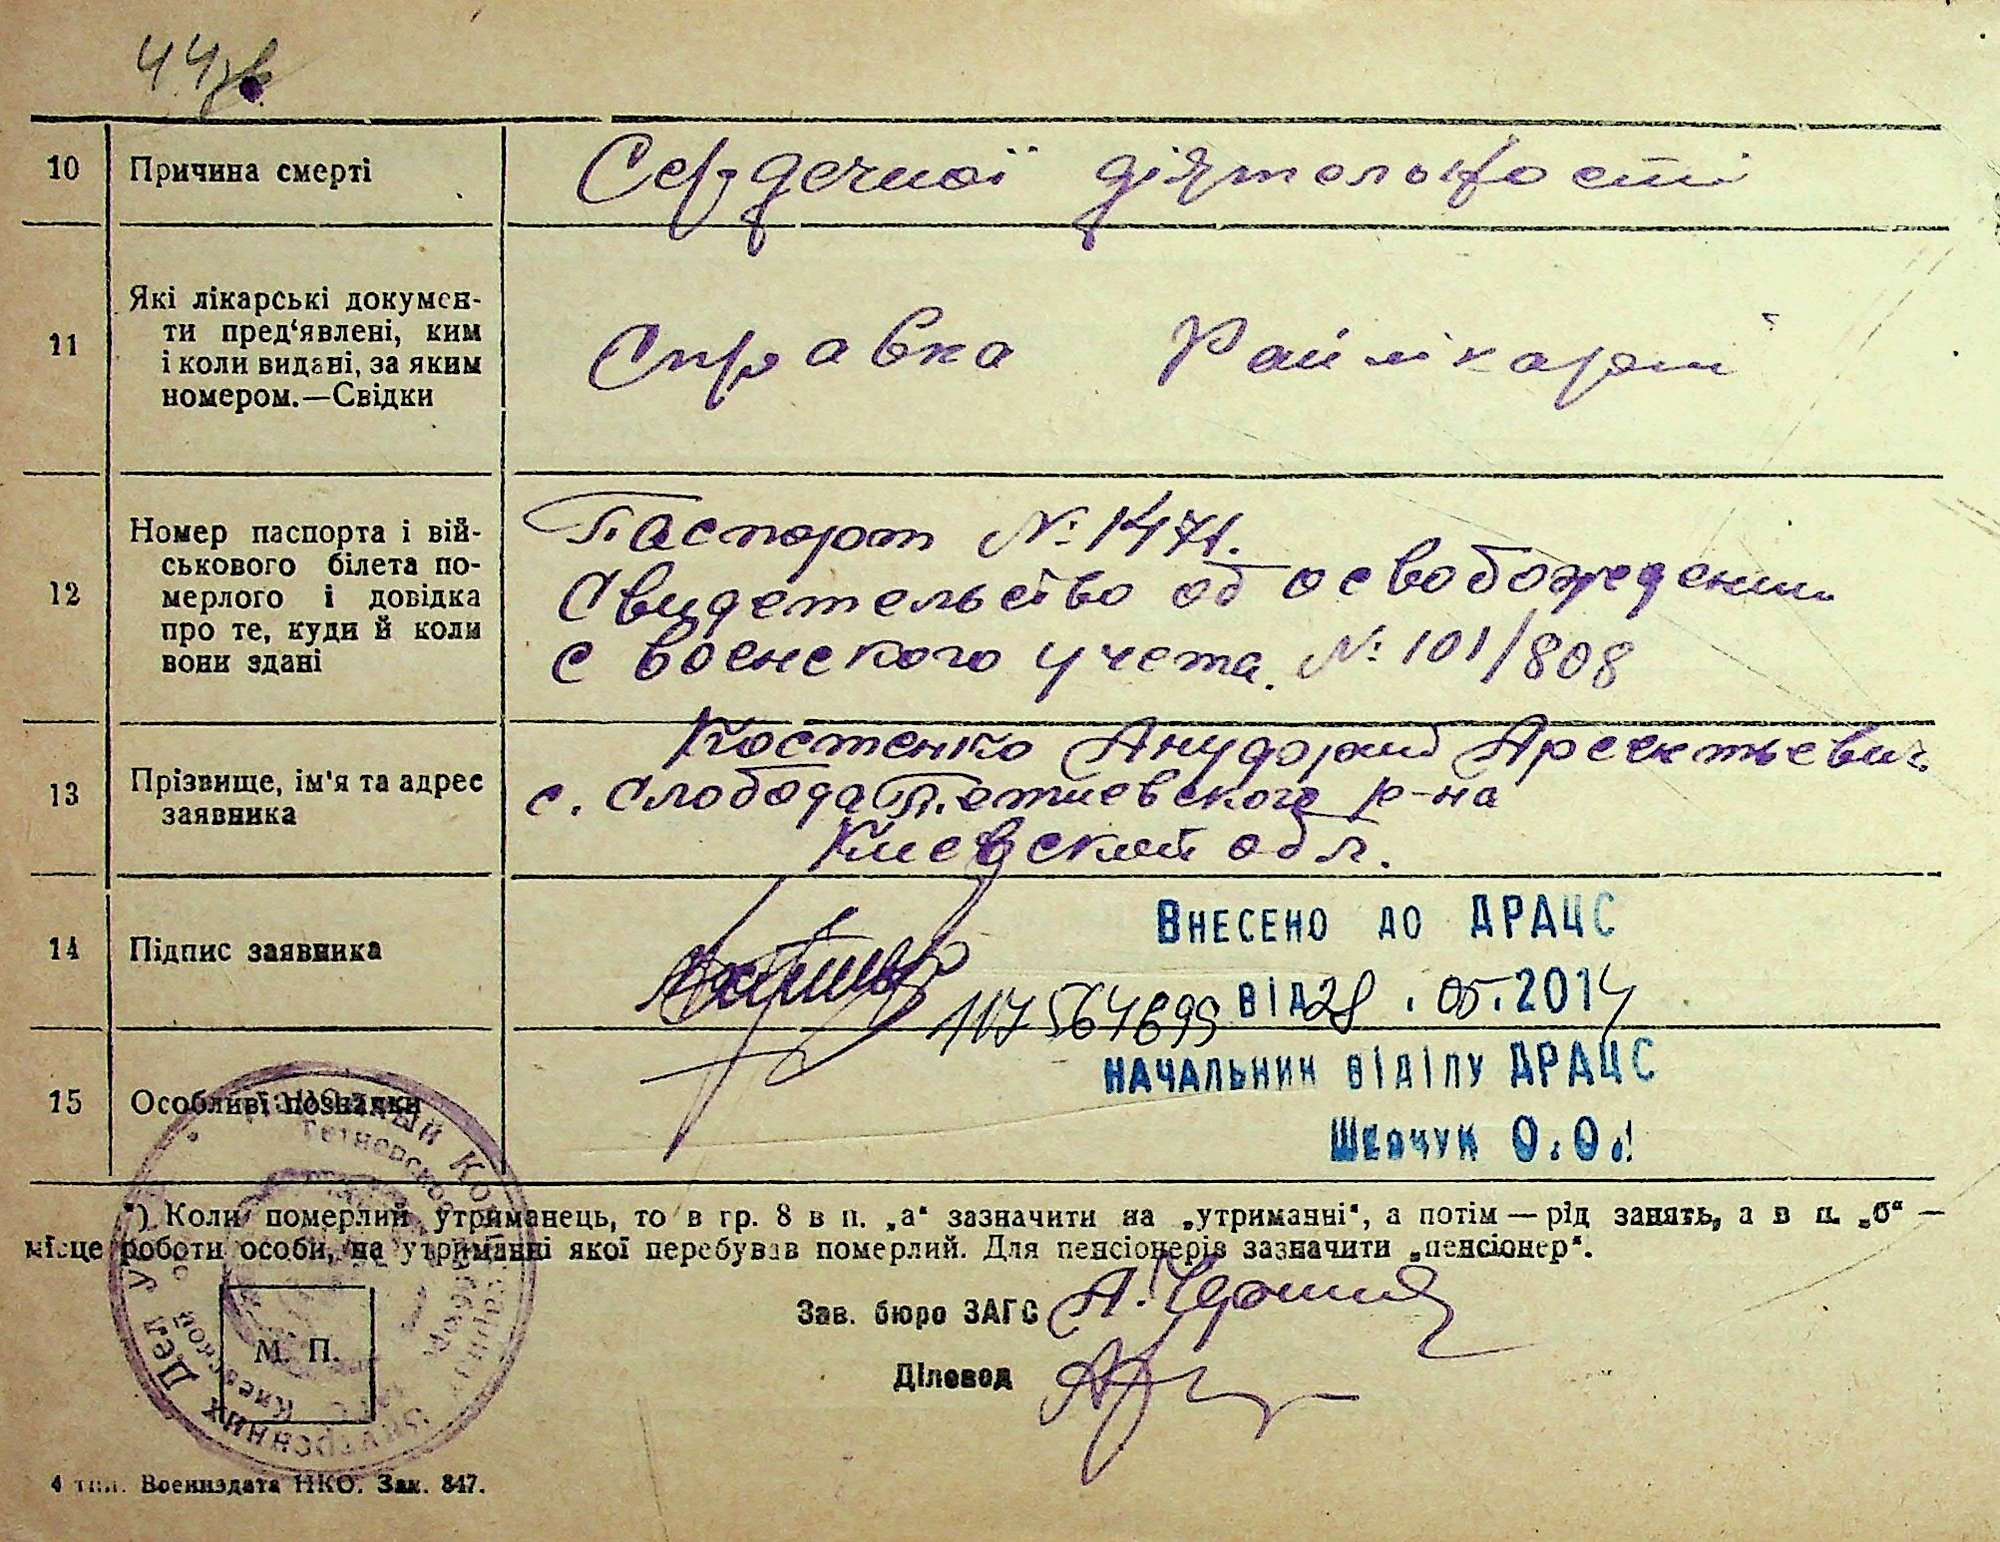 44зв
10 Причина смерті Сердечної діятельності
11 Які лікарські докумен-
ти пред'явлені, ким
і коли видані, за яким
номером.—Свідки
Справка Райлікарні
12 Номер паспорта і вій-
ськового білета по-
мерлого і довідка
про те, куди й коли
вони здані
Паспорт № 1471.
Свидетельство об освобождении
с военского учета. № 101/808
13 Прізвище, ім'я та адрес
заявника
Костенко
с. Слобода Тетиевского р-на
Киевской обл.
14 Підпис заявника
Внесено до ДРАЦС
від 28.05.2014
117564699
15 Особливі познаки
начальник відділу ДРАЦС
Шевчук О.О.
*) Коли померлий утриманець, то в гр. 8 в п. „а“ зазначити на „утриманні“, а потім — рід занять, а в п. „б“ —
місце роботи особи, на утриманні якої перебував померлий. Для пенсіонерів зазначити „пенсіонер“.
Зав. бюро ЗАГС
Діловод
М. П.
Внутренних Дел
Киевской
4 тип. Воениздата НКО. Зак. 847.